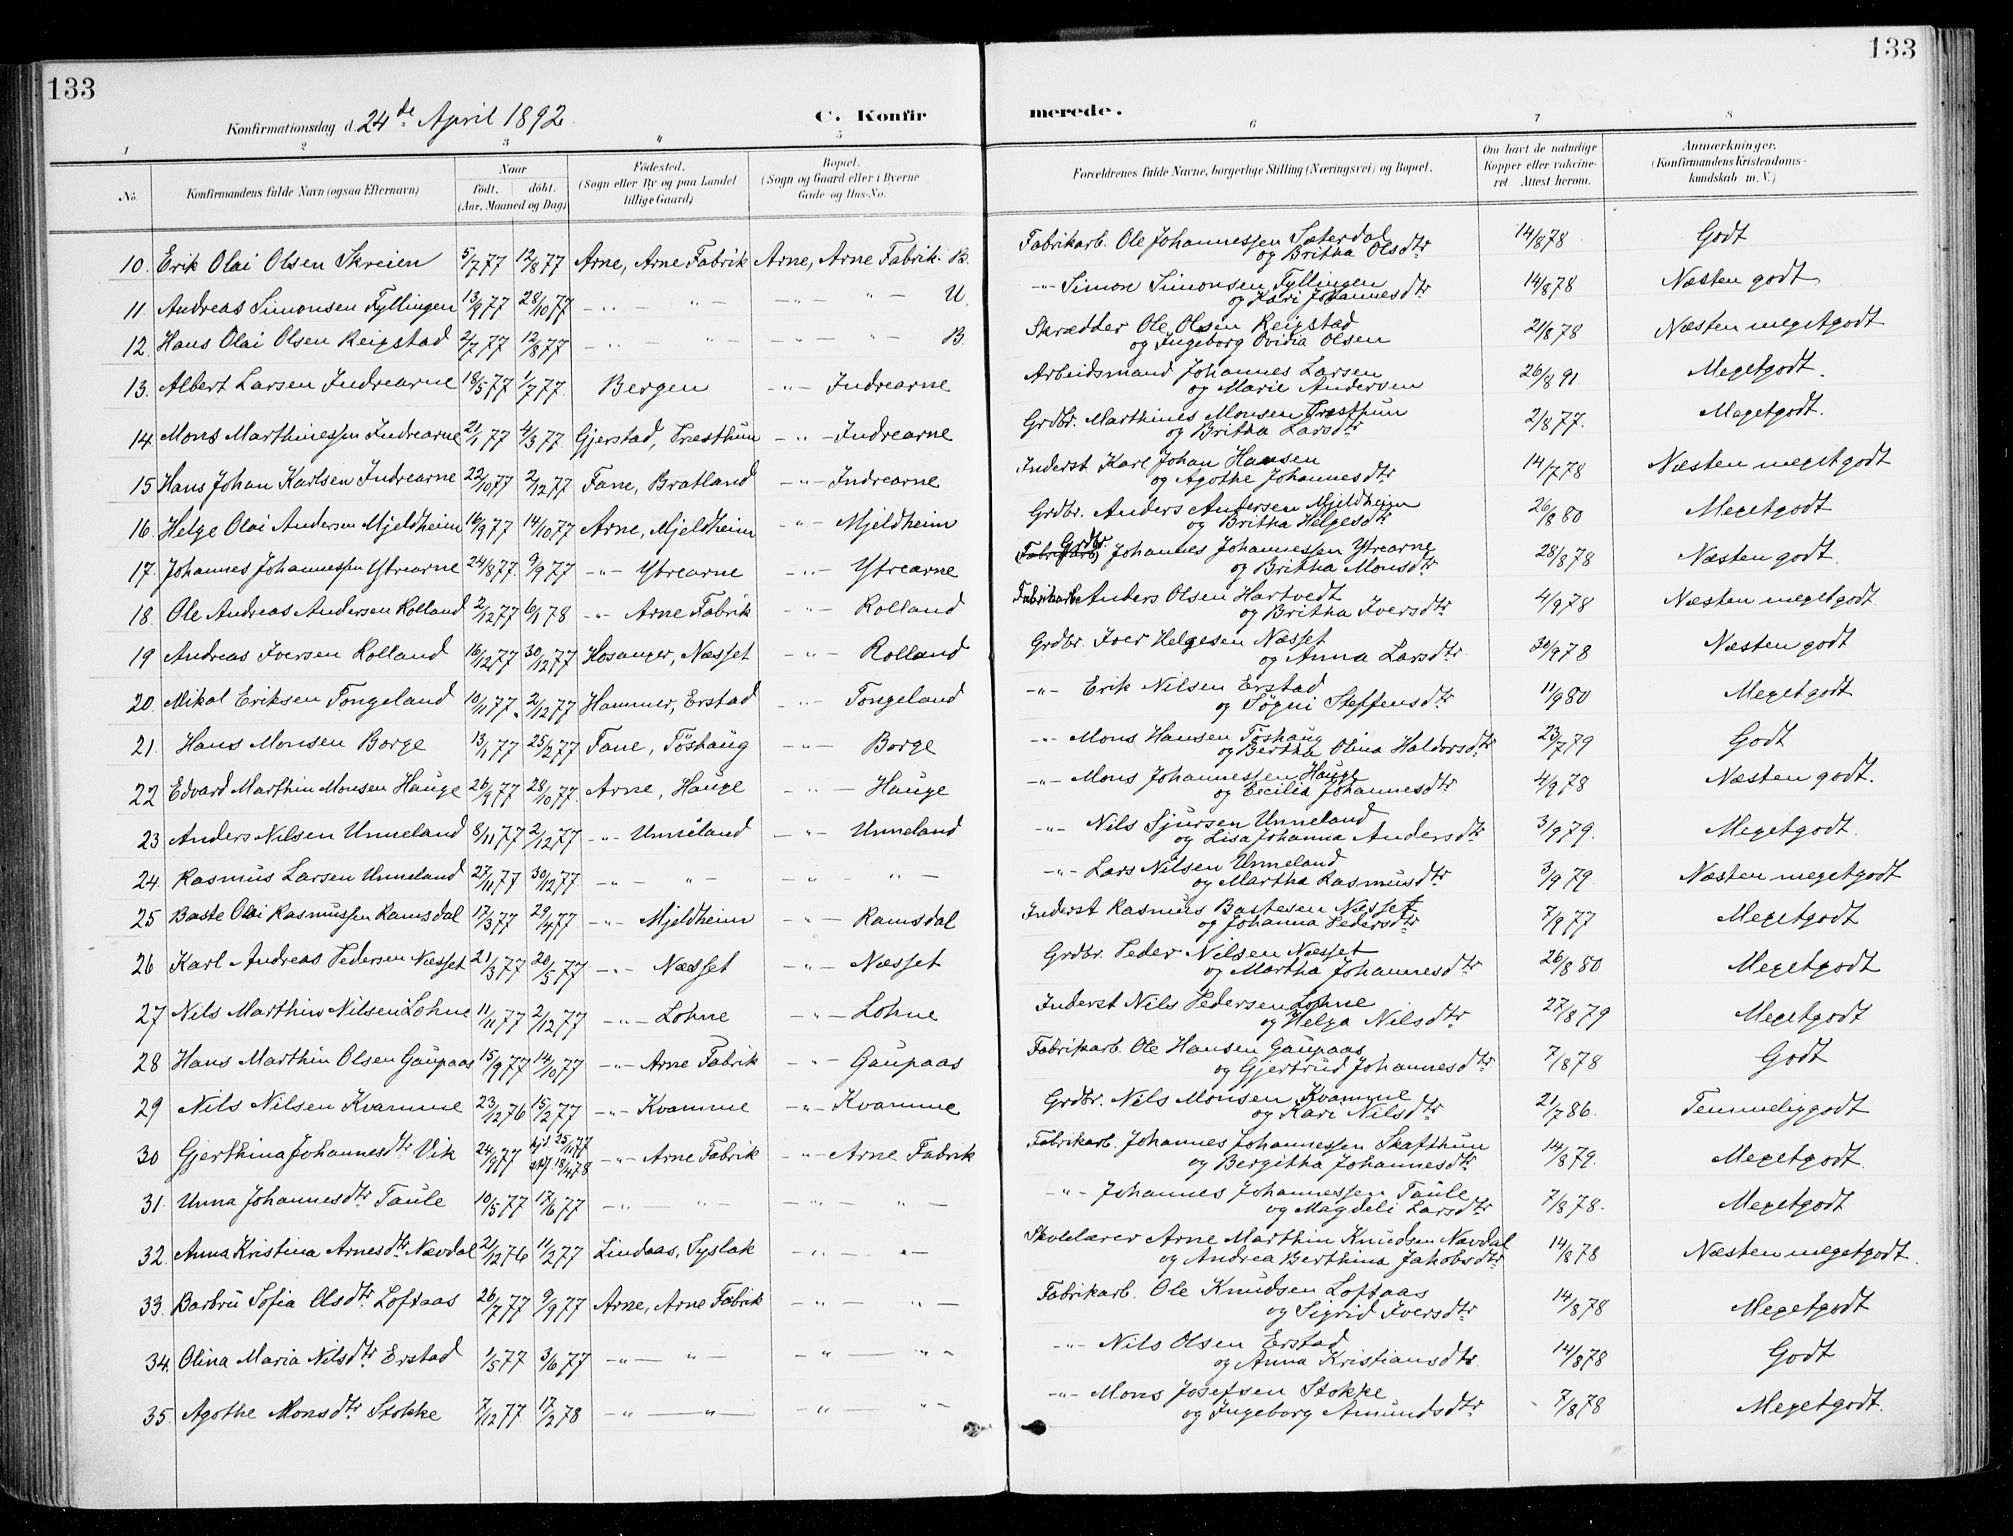 133
133
Konfirmationsdag d. 24de April 1892.
C. Konfir merede.
1 2 3 4 5 6 7 8
No. Konfirmandens fulde Navn (ogsaa Efternavn) Naar født, døbt. (Aar, Maaned og Dag) Fødested. (Sogn eller By og paa Landet tillige Gaard) Bopæl. (Sogn og Gaard eller i Byerne Gade og Hus-No. Forældrenes fulde Navne, borgerlige Stilling (Næringsvei) og Bopæl. Om havt de naturlige Kopper eller vakcineret. Attest herom. Anmærkninger. (Konfirmandens Kristendomskundskab m. V.)
10. Erik Olai Olsen Skreien 5/7 77 12/8 77 Arne, Arne Fabrik Arne, Arne Fabrik B. Fabrikarb. Ole Johannessen Sæterdal og Britha Olsdtr 14/8 78 Godt
11. Andreas Simonsen Fyllingen 13/9 77 28/10 77 -"- "- -"- "- U. -"- Simon Simonsen Fyllingen og Kari Johannesdtr 14/8 78 Næsten godt
12. Hans Olai Olsen Reigstad 2/7 77 12/8 77 -"- "- -"- "- B. Skrædder Ole Olsen Reigstad og Ingeborg Ovidia Olsen 21/8 78 Næsten megetgodt
13. Albert Larsen Indrearne 18/5 77 1/7 77. Bergen -"- Indrearne Arbeidsmand Johannes Larsen og Marie Andersen 26/8 91 Megetgodt.
14. Mons Marthinessen Indrearne 21/1 77 4/3 77. Gjerstad, Præsthun -"- Indrearne Grdbr. Marthines Monsen Præsthun og Britha Larsdtr 2/8 77. Megetgodt.
15 Hans Johan Karlsen Indrearne 22/10 77 2/12 77 Fane, Bratland -"- Indrearne Inderst Karl Johan Hansen og Agothe Johannesdtr 14/7 78 Næsten megetgodt
16. Helge Olai Andersen Mjeldheim 16/9 77 14/10 77 Arne, Mjeldheim -"- Mjeldheim Grdbr. Anders Andersen Mjeldheim og Britha Helgesdtr 26/8 80 Megetgodt
17. Johannes Johannessen Ytrearne 24/8 77. 9/9 77 -"- Ytrearne -"- Ytrearne (Fabrikarb) Grdbr. Johannes Johannessen Ytrearne og Britha Monsdtr 28/8 78 Næsten godt.
18. Ole Andreas Andersen Rolland 2/12 77 6/1 78 -"- Arne Fabrik -"- Rolland Fabrikarb Anders Olsen Hartvedt og Britha Iversdtr 4/9 78 Næsten megetgodt.
19 Andreas Iversen Rolland 16/12 77 30/12 77 Hosanger, Næsset -"- Rolland Grdbr. Iver Helgesen Næsset og Anna Larsdtr 30/9 78 Næsten godt
20. Mikal Eriksen Tongeland 10/11 77. 2/12 77 Hammer, Erstad -"- Tongeland -"- Erik Nilsen Erstad og Søgni Steffensdtr 11/9 80 Megetgodt
21. Hans Monsen Borge 13/1 77 25/2 77 Fane, Tøshaug -"- Borge -"- Mons Hansen Tøshaug og Bertha Olina Haldorsdtr 23/7 79 Godt
22 Edvard Marthin Monsen Hauge 26/9 77 28/10 77. Arne, Hauge -"- Hauge -"- Mons Johannessen Hauge og Cecilia Johannesdtr 4/9 78 Næsten godt.
23. Anders Nilsen Unneland 8/11 77 2/12 77 -"- Unneland -"- Unneland -"- Nils Sjursen Unneland og Lisa Johanna Andersdtr 3/9 79. Megetgodt.
24. Rasmus Larsen Unneland 27/11 77 30/12 77 -"- "- -"- "- -"- Lars Nilsen Unneland og Martha Rasmusdtr 3/9 79. Næsten megetgodt
25 Baste Olai Rasmussen Ramsdal 17/3 77 29/4 77 -"- Mjeldheim -"- Ramsdal Inderst Rasmus Bastesen Næsset og Johanna Pedersdtr 7/9 77 Megetgodt
26 Karl Andreas Pedersen Næsset 21/3 77 20/5 77 -"- Næsset -"- Næsset Grdbr. Peder Nilsen Næsset og Martha Johannesdtr 26/8 80 Megetgodt
27 Nils Marthin Nilsen Lohne 11/11 77 2/12 77 -"- Lohne -"- Lohne Inderst Nils Pedersen Lohne og Helga Nilsdtr 27/8 79 Megetgodt
28 Hans Marthin Olsen Gaupaas 15/9 77 14/10 77 -"- Arne Fabrik -"- Gaupaas Fabrikarb. Ole Hansen Gaupaas og Gjertrud Johannesdtr 7/8 78 Godt
29 Nils Nilsen Kvamme 23/12 76 15/2 77 -"- Kvamme -"- Kvamme Grdbr. Nils Monsen Kvamme og Kari Nilsdtr 21/7 86. Temmeliggodt
30 Gjerthina Johannesdtr Vik 24/9 77 25/11 77 18/4 78 -"- Arne Fabrik -"- Arne Fabrik Fabrikarb. Johannes Johannessen Skafthun og Bergitha Johannesdtr 14/8 79. Megetgodt.
31. Unna Johannesdtr Taule 10/5 77 17/6 77 -"- "- -"- "- -"- Johannes Johannessen Taule og Magdeli Larsdtr 7/8 78. Megetgodt
32. Anna Kristina Arnesdtr Nævdal 21/12 76 11/2 77 Lindaas, Syslak -"- "- Skolelærer Arne Marthin Knudsen Nævdal og Andrea Berthina Jakobsdtr 14/8 78 Næsten megetgodt.
33. Barbru Sofia Olsdtr Loftaas 26/7 77 9/9 77 Arne, Arne Fabrik -"- "- Fabrikarb. Ole Knudsen Loftaas og Sigrid Iversdtr 14/8 78 Megetgodt
34. Olina Maria Nilsdtr Erstad 1/5 77 3/6 77 -"- "- -"- "- -"- Nils Olsen Erstad og Anna Kristiansdtr. 14/8 78 Godt
35. Agothe Monsdtr Stokke 7/12 77 17/2 78 -"- "- -"- "- -"- Mons Josefsen Stokke og Ingeborg Amundsdtr 7/8 78 Megetgodt.